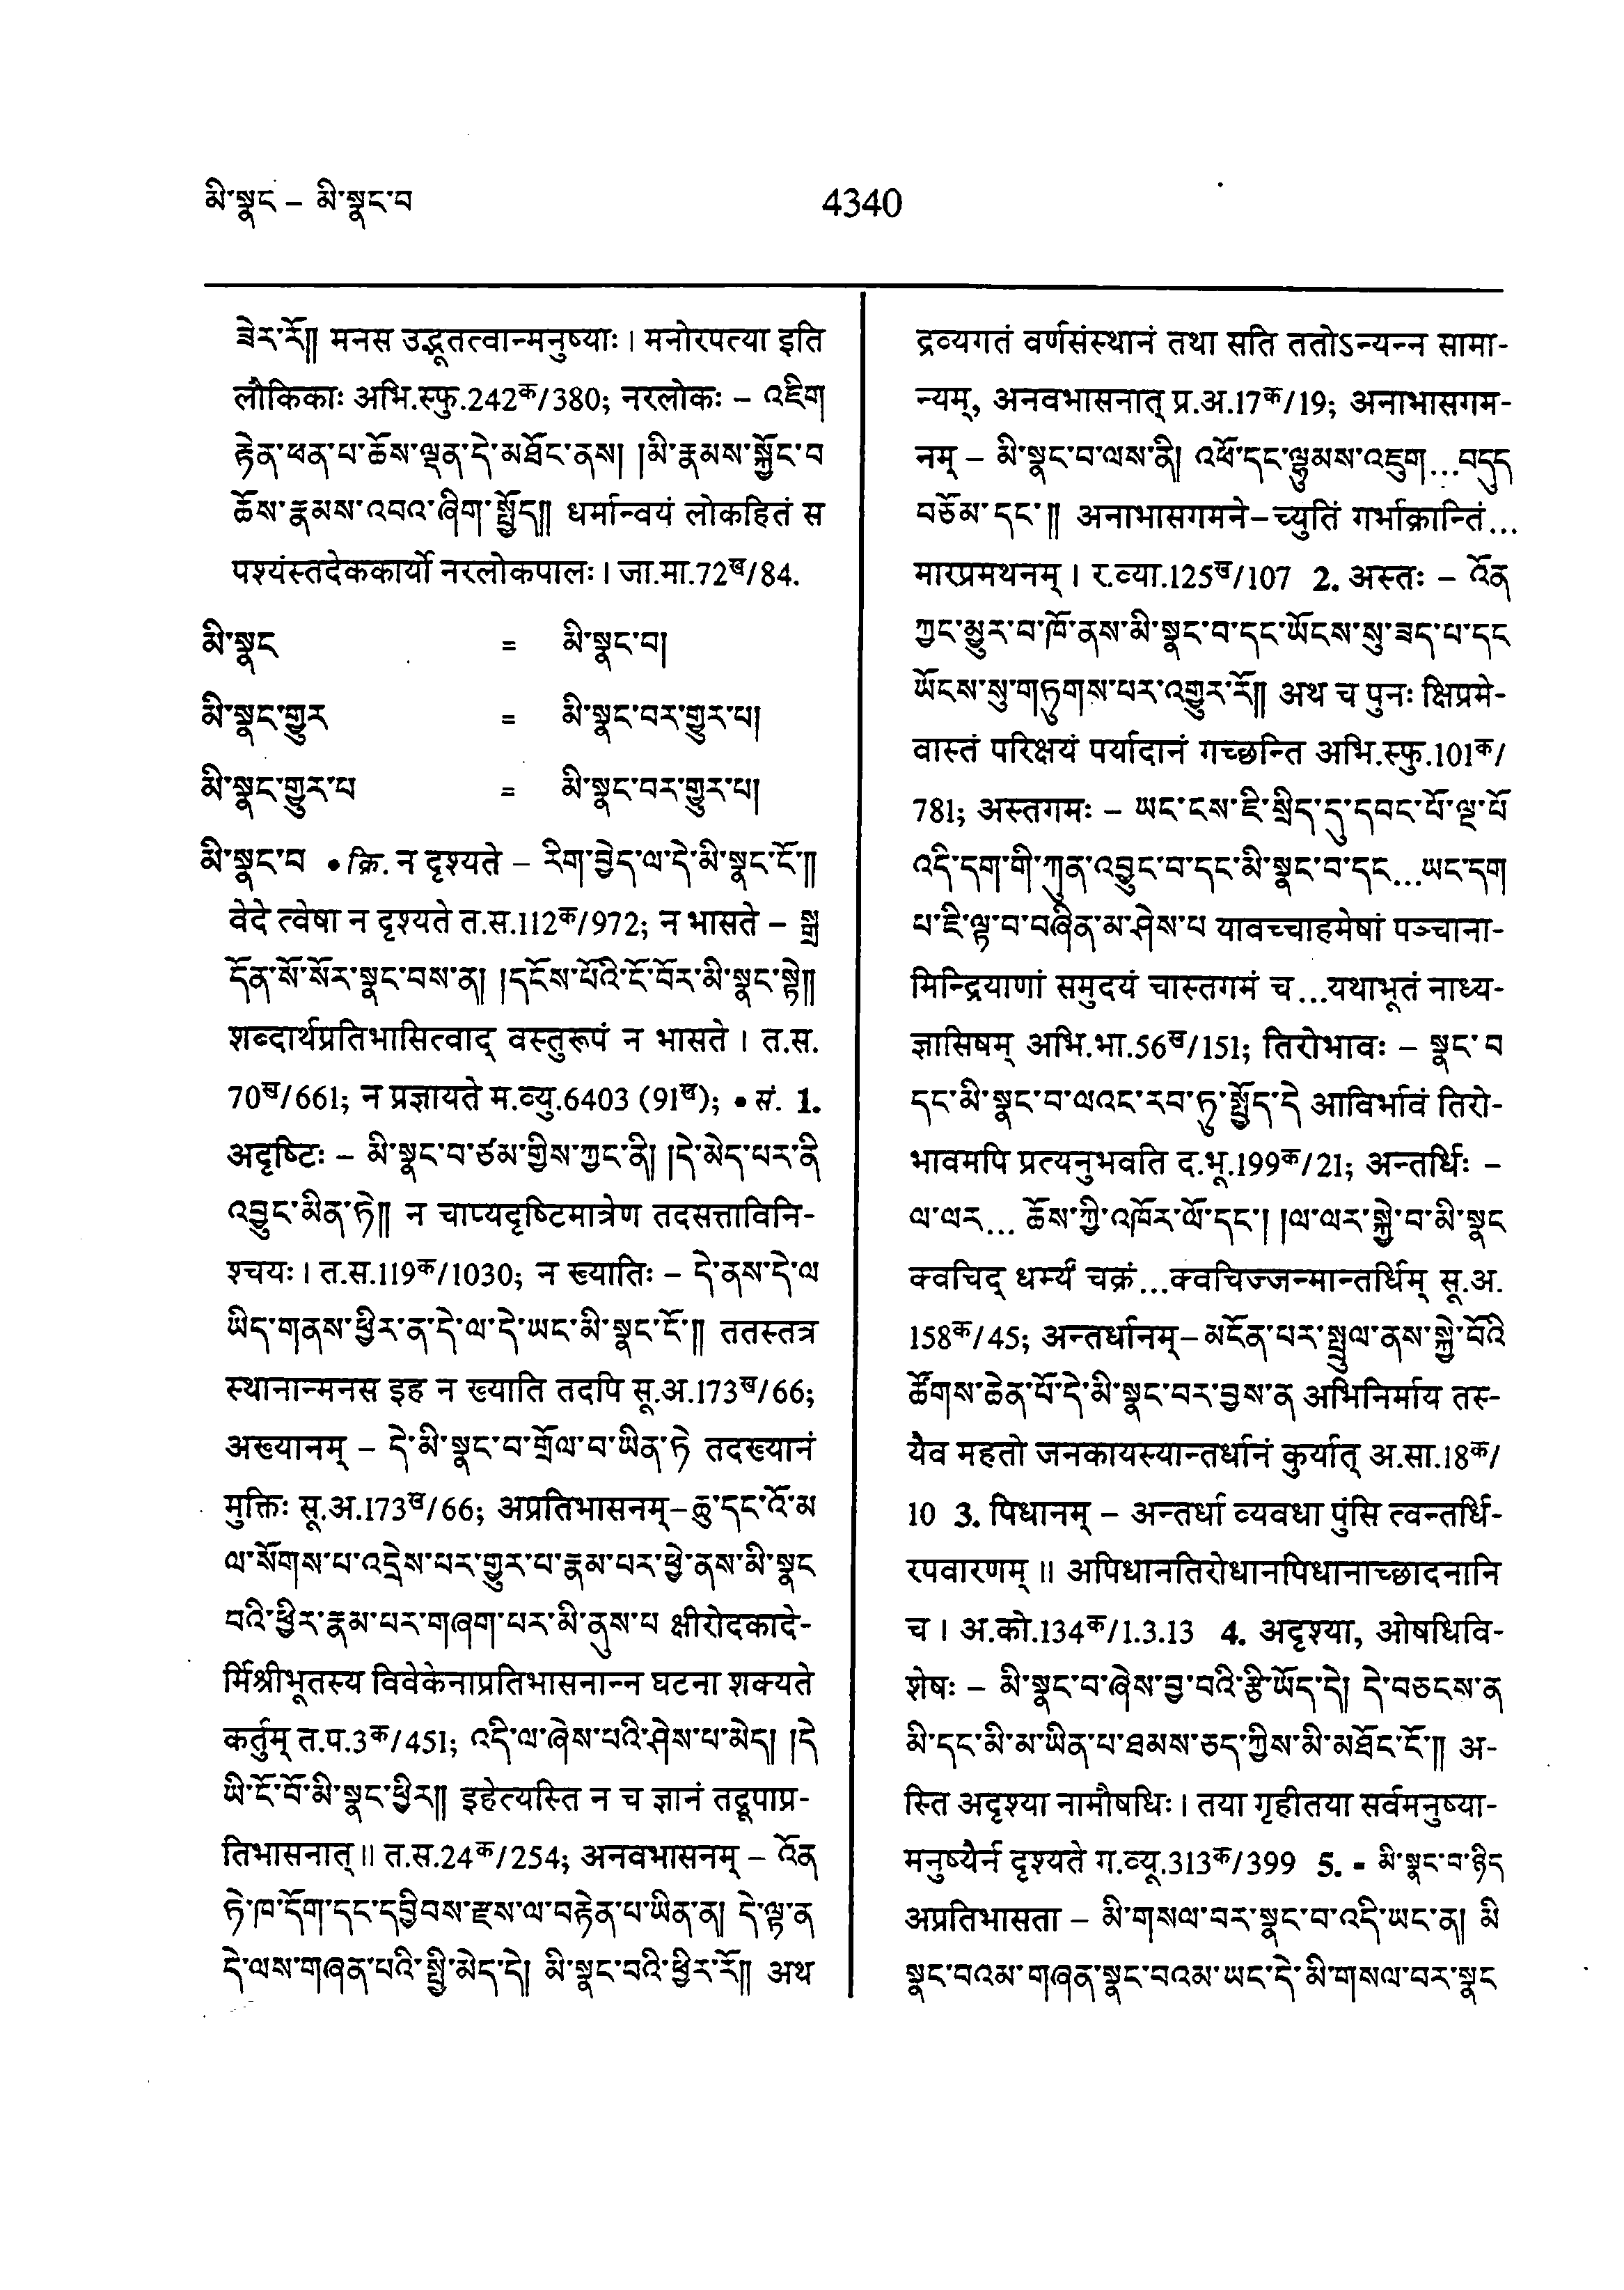 མི་སྣང – མི་སྣང་བ
4340
ཟེར་རོ༎ मनस उद्भूतत्वान्मनुष्याः । मनोरपत्या इति
लौकिकाः अभि.स्फु.242क/380; नरलोकः – འཇིག
རྟེན་ཕན་པ་ཆོས་ལྡན་དེ་མཐོང་ནས། །མི་རྣམས་སྐྱོང་བ
ཆོས་རྣམས་འབའ་ཞིག་སྤྱོད༎ धर्मान्वयं लोकहितं स
पश्यंस्तदेककार्यो नरलोकपालः । जा.मा.72ख/84.
མི་སྣང = མི་སྣང་བ།
མི་སྣང་གྱུར = མི་སྣང་བར་གྱུར་པ།
མི་སྣང་གྱུར་པ = མི་སྣང་བར་གྱུར་པ།
མི་སྣང་བ • क्रि. न दृश्यते – རིག་བྱེད་ལ་དེ་མི་སྣང་ངོ་༎
वेदे त्वेषा न दृश्यते त.स.112क/972; न भासते – སྒྲ
དོན་སོ་སོར་སྣང་བས་ན། །དངོས་པོའི་ངོ་བོར་མི་སྣང་སྟེ༎
शब्दार्थप्रतिभासित्वाद् वस्तुरूपं न भासते । त.स.
70ख/661; न प्रज्ञायते म.व्यु.6403 (91ख); • सं. 1.
अदृष्टिः – མི་སྣང་བ་ཙམ་གྱིས་ཀྱང་ནི། །དེ་མེད་པར་ནི
འབྱུང་མིན་ཏེ༎ न चाप्यदृष्टिमात्रेण तदसत्ताविनि-
श्चयः । त.स.119क/1030; न ख्यातिः – དེ་ནས་དེ་ལ
ཡིད་གནས་ཕྱིར་ན་དེ་ལ་དེ་ཡང་མི་སྣང་ངོ་༎ ततस्तत्र
स्थानान्मनस इह न ख्याति तदपि सू.अ.173ख/66;
अख्यानम् – དེ་མི་སྣང་བ་གྲོལ་བ་ཡིན་ཏེ तदख्यानं
मुक्तिः सू.अ.173ख/66; अप्रतिभासनम्–ཆུ་དང་འོ་མ
ལ་སོགས་པ་འདྲེས་པར་གྱུར་པ་རྣམ་པར་ཕྱེ་ནས་མི་སྣང
བའི་ཕྱིར་རྣམ་པར་གཞག་པར་མི་ནུས་པ क्षीरोदकादे-
र्मिश्रीभूतस्य विवेकेनाप्रतिभासनान्न घटना शक्यते
कर्तुम् त.प.3क/451; འདི་ལ་ཞེས་པའི་ཤེས་པ་མེད། །དེ
ཡི་ངོ་བོ་མི་སྣང་ཕྱིར༎ इहेत्यस्ति न च ज्ञानं तद्रूपाप्र-
तिभासनात् ॥ त.स.24क/254; अनवभासनम् – འོན
ཏེ་ཁ་དོག་དང་དབྱིབས་རྫས་ལ་བརྟེན་པ་ཡིན་ན། དེ་ལྟ་ན
དེ་ལས་གཞན་པའི་སྤྱི་མེད་དེ། མི་སྣང་བའི་ཕྱིར་རོ༎ अथ
द्रव्यगतं वर्णसंस्थानं तथा सति ततोऽन्यन्न सामा-
न्यम्, अनवभासनात् प्र.अ.17क/19; अनाभासगम-
नम् – མི་སྣང་བ་ལས་ནི། འཕོ་དང་ལྷུམས་འཇུག...བདུད
བཅོམ་དང་༎ अनाभासगमने–च्युतिं गर्भाक्रान्तिं...
मारप्रमथनम् । र.व्या.125ख/107 2. अस्तः – འོན
ཀྱང་མྱུར་བ་ཁོ་ནས་མི་སྣང་བ་དང་ཡོངས་སུ་ཟད་པ་དང
ཡོངས་སུ་གཏུགས་པར་འགྱུར་རོ༎ अथ च पुनः क्षिप्रमे-
वास्तं परिक्षयं पर्यादानं गच्छन्ति अभि.स्फु.101क/
781; अस्तगमः – ཡང་ངས་ཇི་སྲིད་དུ་དབང་པོ་ལྔ་པོ
འདི་དག་གི་ཀུན་འབྱུང་བ་དང་མི་སྣང་བ་དང...ཡང་དག
པ་ཇི་ལྟ་བ་བཞིན་མ་ཤེས་པ यावच्चाहमेषां पञ्चाना-
मिन्द्रियाणां समुदयं चास्तगमं च...यथाभूतं नाध्य-
ज्ञासिषम् अभि.भा.56ख/151; तिरोभावः – སྣང་བ
དང་མི་སྣང་བ་ལའང་རབ་ཏུ་སྤྱོད་དེ आविर्भावं तिरो-
भावमपि प्रत्यनुभवति द.भू.199क/21; अन्तर्धिः –
ལ་ལར... ཆོས་ཀྱི་འཁོར་ལོ་དང་། །ལ་ལར་སྐྱེ་བ་མི་སྣང
क्वचिद् धर्म्यं चक्रं...क्वचिज्जन्मान्तर्धिम् सू.अ.
158क/45; अन्तर्धानम्–མངོན་པར་སྤྲུལ་ནས་སྐྱེ་བོའི
ཚོགས་ཆེན་པོ་དེ་མི་སྣང་བར་བྱས་ན अभिनिर्माय तस्-
यैव महतो जनकायस्यान्तर्धानं कुर्यात् अ.सा.18क/
10 3. पिधानम् – अन्तर्धा व्यवधा पुंसि त्वन्तर्धि-
रपवारणम् ॥ अपिधानतिरोधानपिधानाच्छादनानि
च । अ.को.134क/1.3.13 4. अदृश्या, ओषधिवि-
शेषः – མི་སྣང་བ་ཞེས་བྱ་བའི་རྩི་ཡོད་དེ། དེ་བཅངས་ན
མི་དང་མི་མ་ཡིན་པ་ཐམས་ཅད་ཀྱིས་མི་མཐོང་ངོ་༎ अ-
स्ति अदृश्या नामौषधिः । तया गृहीतया सर्वमनुष्या-
मनुष्यैर्न दृश्यते ग.व्यू.313क/399 5. - མི་སྣང་བ་ཉིད
अप्रतिभासता – མི་གསལ་བར་སྣང་བ་འདི་ཡང་ན། མི
སྣང་བའམ་གཞན་སྣང་བའམ་ཡང་དེ་མི་གསལ་བར་སྣང